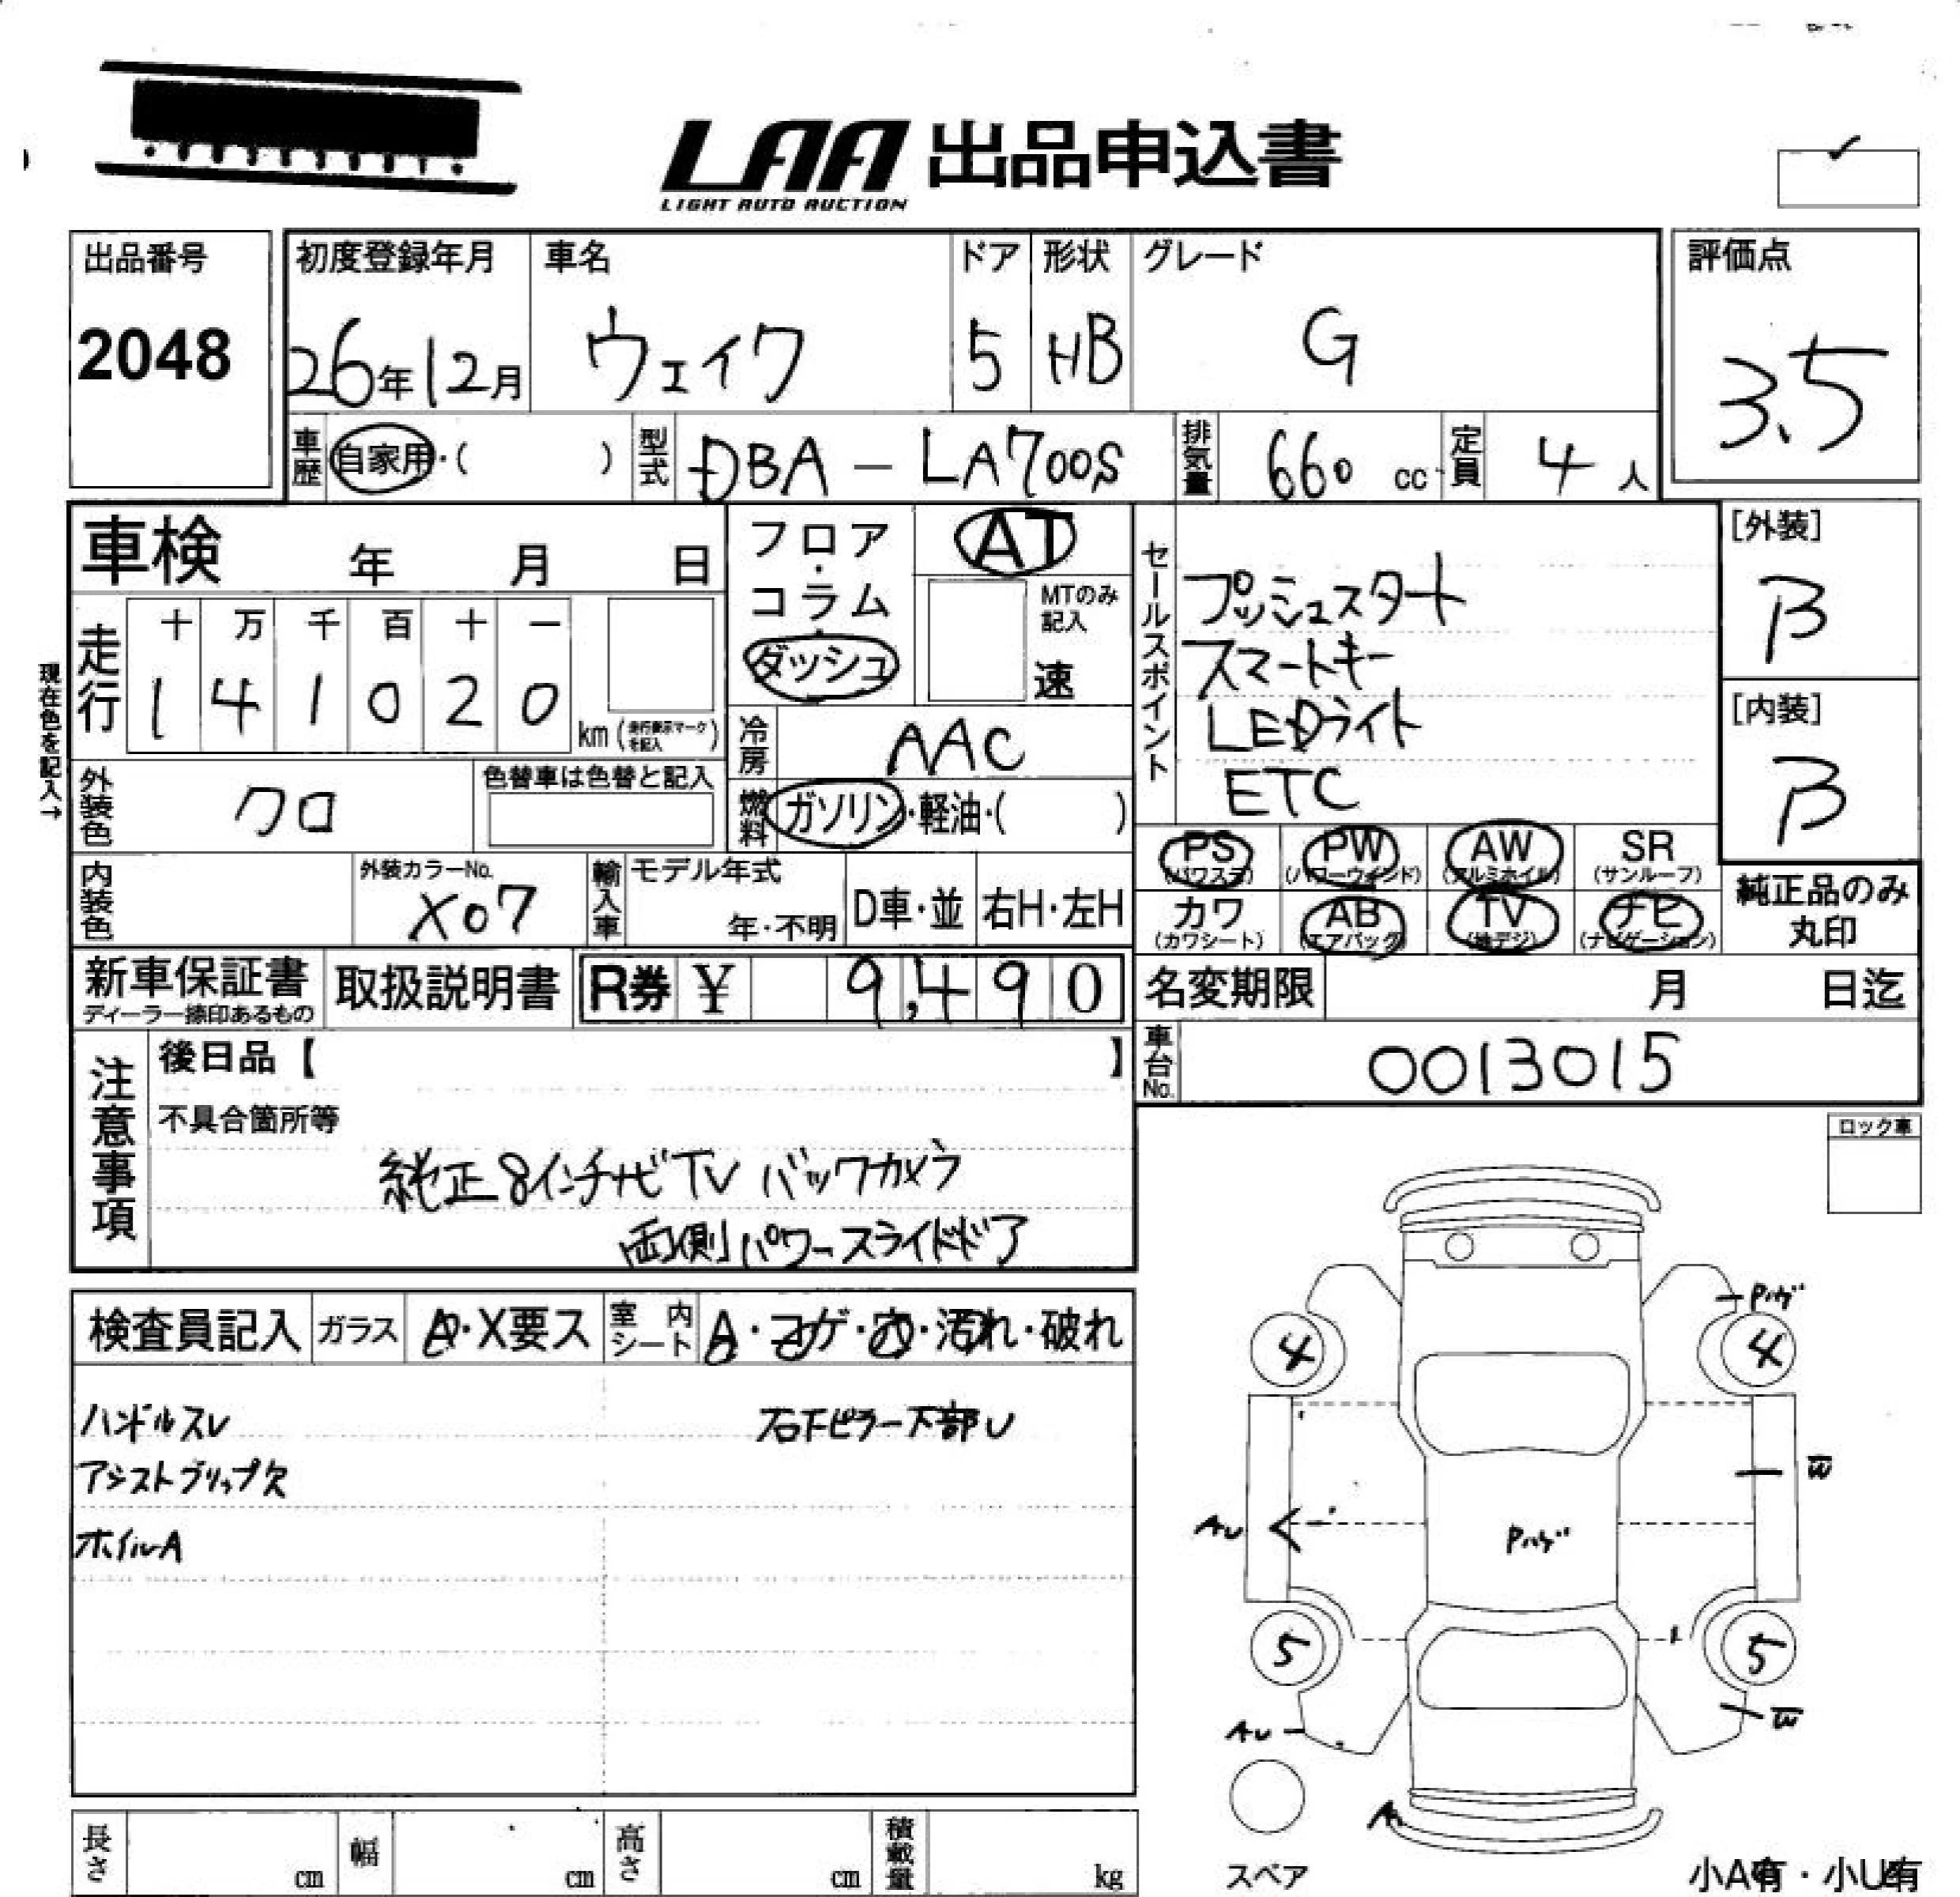 LAA 出品申込書
LIGHT AUTO AUCTION
出品番号
2048
初度登録年月
26年12月
車名
ウェイク
ドア
5
形状
HB
グレード
G
評価点
3.5
車歴 自家用・( )
型式 DBA-LA700S
排気量 660 cc
定員 4人
車検 年 月 日
フロア・コラム・ダッシュ
AT
MTのみ記入
速
セールスポイント
プッシュスタート
スマートキー
LEDライト
ETC
[外装]
B
[内装]
B
現在色を記入→
走行
十 万 千 百 十 一
1 4 1 0 2 0
km (走行表示マークを記入)
冷房 AAC
外装色 クロ
色替車は色替と記入
燃料 ガソリン・軽油・( )
PS (パワステ)
PW (パワーウィンド)
AW (アルミホイル)
SR (サンルーフ)
カワ (カワシート)
AB (エアバック)
TV (地デジ)
ナビ (ナビゲーション)
純正品のみ
丸印
内装色
外装カラーNo.
X07
輸入車
モデル年式
年・不明
D車・並
右H・左H
新車保証書
ディーラー捺印あるもの
取扱説明書
R券 ¥ 9,490
名変期限 月 日迄
車台No. 0013015
注意事項
後日品【 】
不具合箇所等
純正8インチナビTV バックカメラ
両側パワースライドドア
ロック車
検査員記入
ガラス A・X要ス
室内シート A・コゲ・穴・汚れ・破れ
ハンドルスレ
右下ピラー下部U
アシストグリップ欠
ホイルA
Pハゲ
4 4
W
AU
Pハゲ
5 5
AU
W
A
スペア
小A有・小U有
長さ cm
幅 cm
高さ cm
積載量 kg